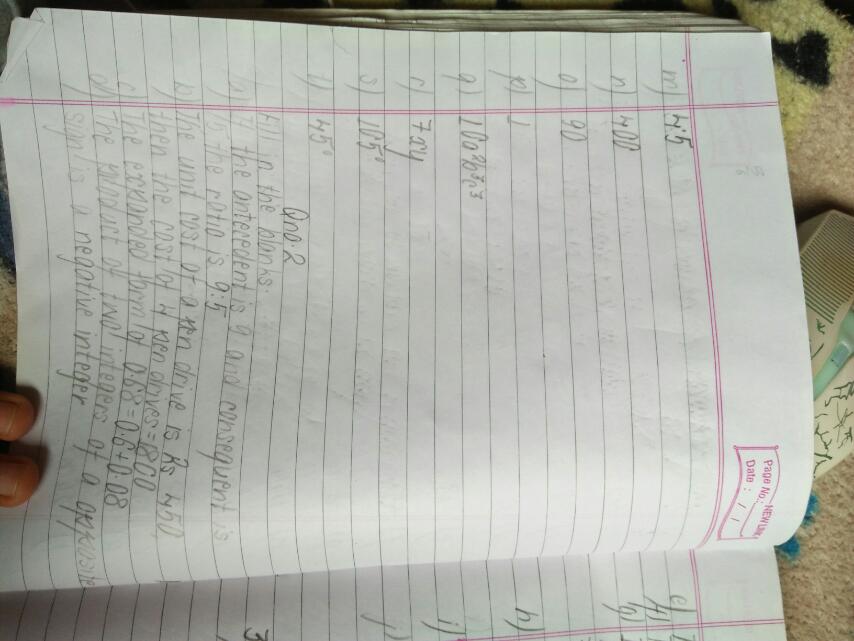 Page No.: NEW LINK
Date: / /
m) 4:5
n) 400
o) 90
p) 1
q)
r) 7xy
s) 105°
t) 45°
Qno.2
Fill in the blanks:
a) If the antecedent is 9 and consequent is
5 the ratio is 9:5
b) The unit cost of a pen drive is Rs 450
then the cost of 4 pen drives = 1800
c) The expanded form of 0.68 = 0.6 + 0.08
d) The product of two integers of a opposite
sign is a negative integer
e)
f)
g)
h)
i)
j)
3